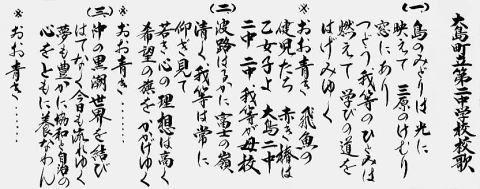 大島町立第二中学校校歌
(一) 島のみどりは 光に
映えて 三原のけむり
窓にあり
つどう我等のひとみは
燃えて 学びの道を
はげみゆく
※ おお青き 飛魚の
健児たち 赤き椿は
乙女子よ 大島二中
二中 二中 我等が母校
(二) 波路はるかに 富士の嶺
清く 我等は常に
仰ぎ見て
若き心の 理想は高く
希望の旗を かかげゆく
※ おお青き……
(三) 沖の黒潮 世界を結び
はてなく今日も 流れゆく
夢も豊かに 協和と自治の
心をともに 養なわん
※ おお青き……